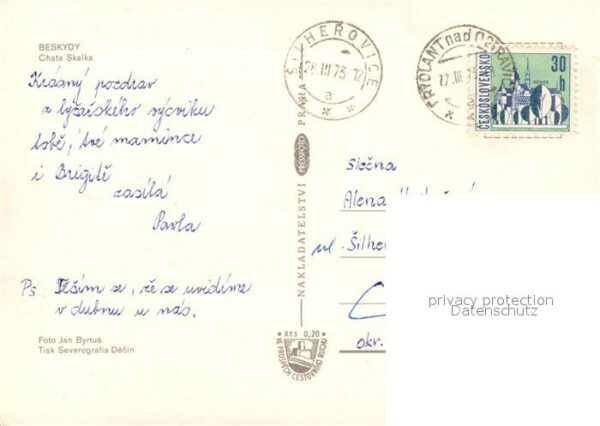 BESKYDY
Chata Skalka
Krásný pozdrav
z lyžařského výcviku
tobě, tvé mamince
i Brigitě
zasílá
Pavla
Ps: Těším se, že se uvidíme
v dubnu u nás.
Foto Jan Byrtus
Tisk Severografia Děčín
NAKLADATELSTVÍ PRESSFOTO PRAHA
Kčs 0,20
VE PROSPĚCH CESTOVNÍHO RUCHU
ŠILHEŘOVICE
28.III 73 12
a
FRÝDLANT nad OSTRAVICÍ
27.III 73
ČESKOSLOVENSKO
30 h
Slečna
Alena
ul. Šilheř
okr.
privacy protection
Datenschutz